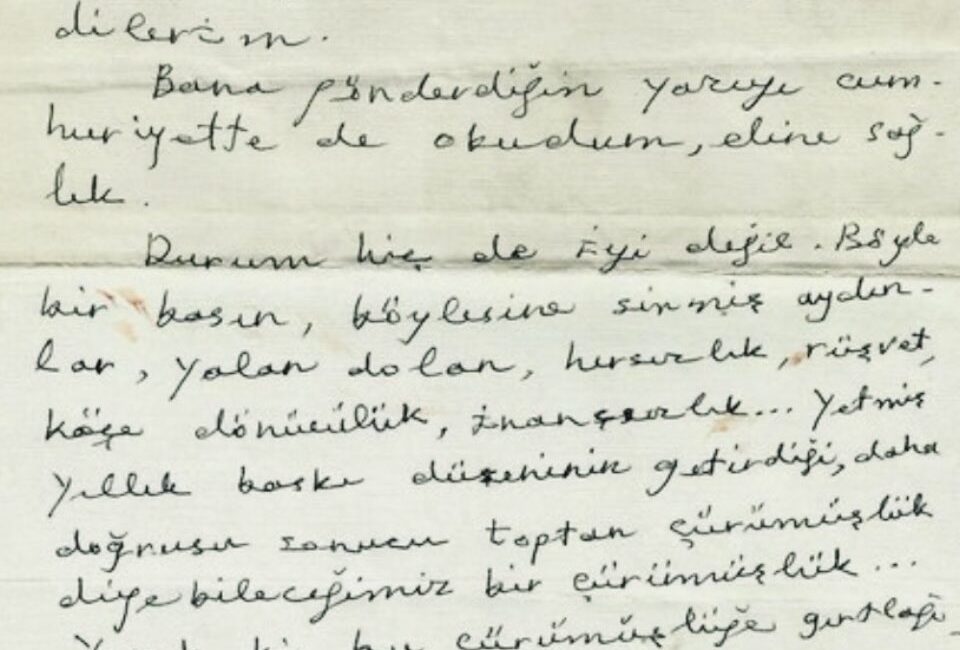 dilerim.
Bana gönderdiğin yazıyı cum-
huriyette de okudum, eline sağ-
lık.
Durum hiç de iyi değil. Böyle
bir basın, böylesine sinmiş aydın-
lar, yalan dolan, hırsızlık, rüşvet,
köşe dönücülük, inançsızlık... Yetmiş
yıllık baskı düzeninin getirdiği, daha
doğrusu sonucu toptan çürümüşlük
diyebileceğimiz bir çürümüşlük...
bu çürümüşlüğe gırtlağı